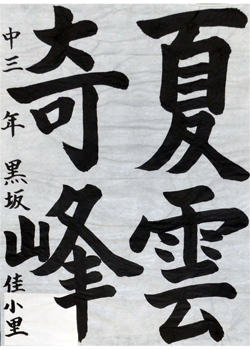 夏雲
奇峰
中三年 黒坂佳小里